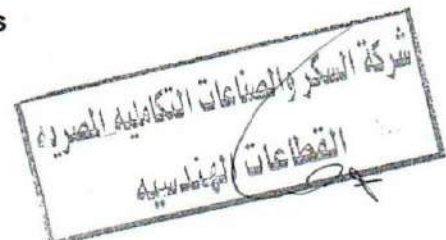 s
شركة السكر والصناعات التكاملية المصرية
القطاعات الهندسية